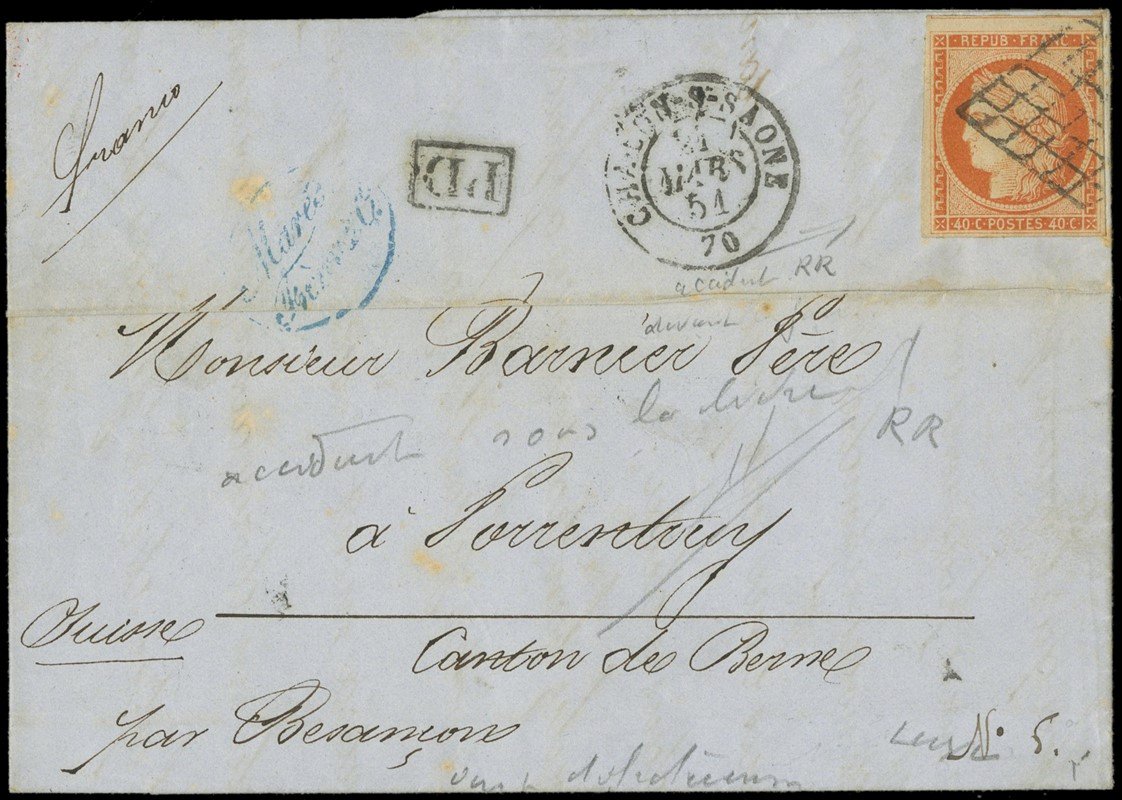 REPUB·FRANC·
40·C·POSTES·40·C·
Franco
PD
CHALON-S-SAONE
21
MARS
51
70
accident RR
Monsieur Barnier Père
accident sous la
RR
à Porrentruy
Suisse
Canton de Berne
par Besançon
No 5.